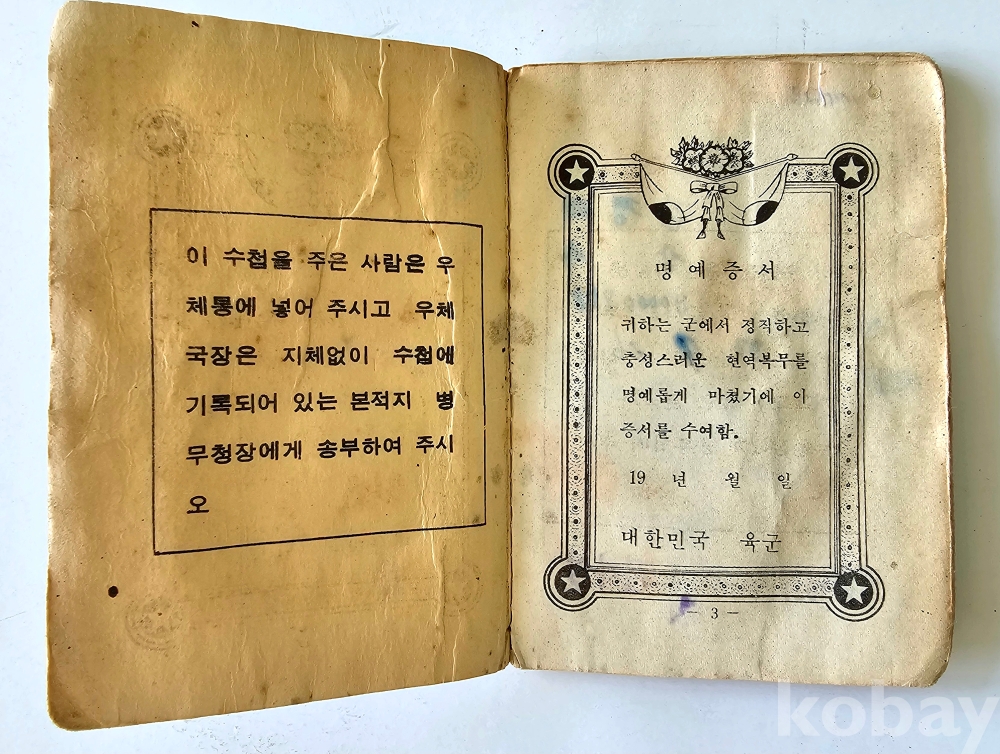 이 수첩을 주은 사람은 우
체통에 넣어 주시고 우체
국장은 지체없이 수첩에
기록되어 있는 본적지 병
무청장에게 송부하여 주시
오
명예증서
귀하는 군에서 정직하고
충성스러운 현역복무를
명예롭게 마쳤기에 이
증서를 수여함.
19 년 월 일
대한민국 육군
- 3 -
kobay